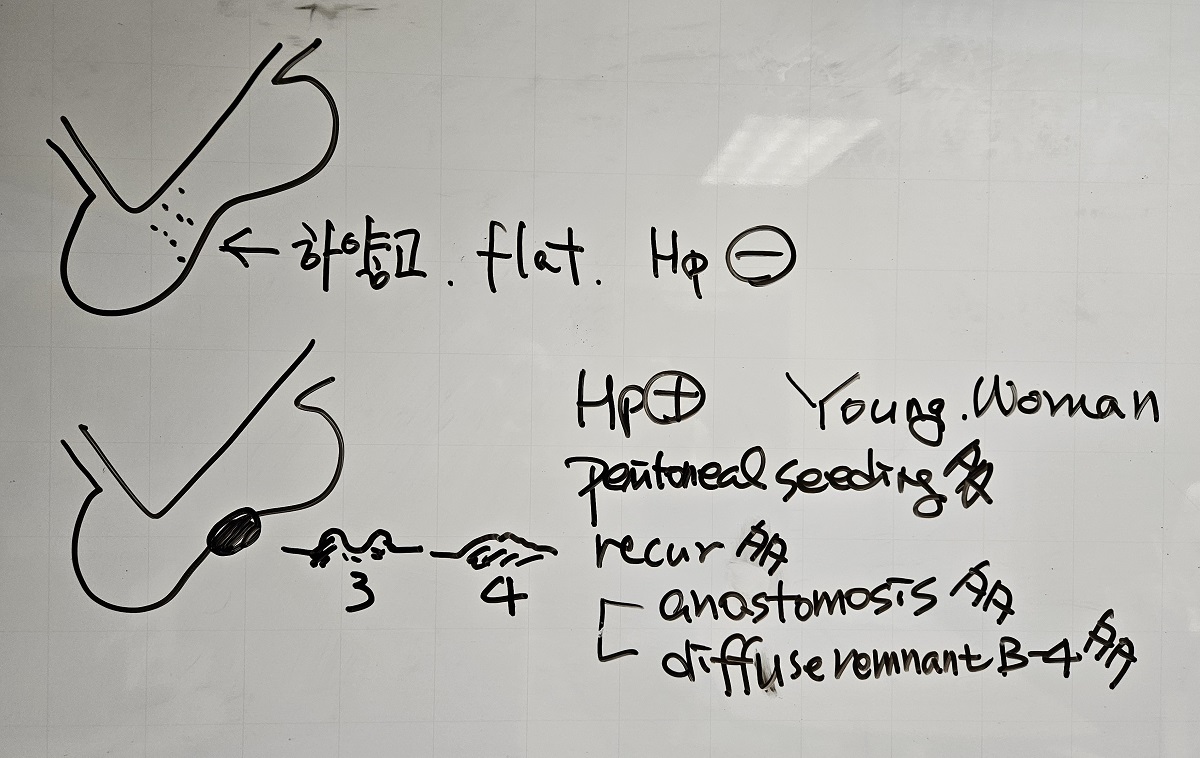 ← 하얗고. flat. Hp ⊖
Hp ⊕ Young. Woman
peritoneal seeding ⇑
recur ⇑
3 4
anastomosis ⇑
diffuse remnant B-4 ⇑